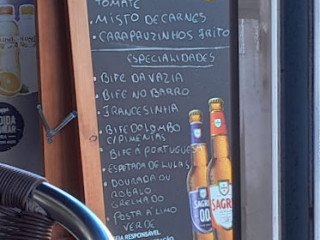 TOMATE
• MISTO DE CARNES
• CARAPAUZINHOS FRITO
ESPECIALIDADES
• BIFE DA VAZIA
• BIFE NO BARRO
• FRANCESINHA
• BIFE DO LOMBO
C/PIMENTAS
• BIFE À PORTUGUES
• ESPETADA DE LULAS
• DOURADA OU
ROBALO
GRELHADO
• POSTA A LIMO
VERDE
SAGRES
SAGR
0.0
RESPONSÁVEL.